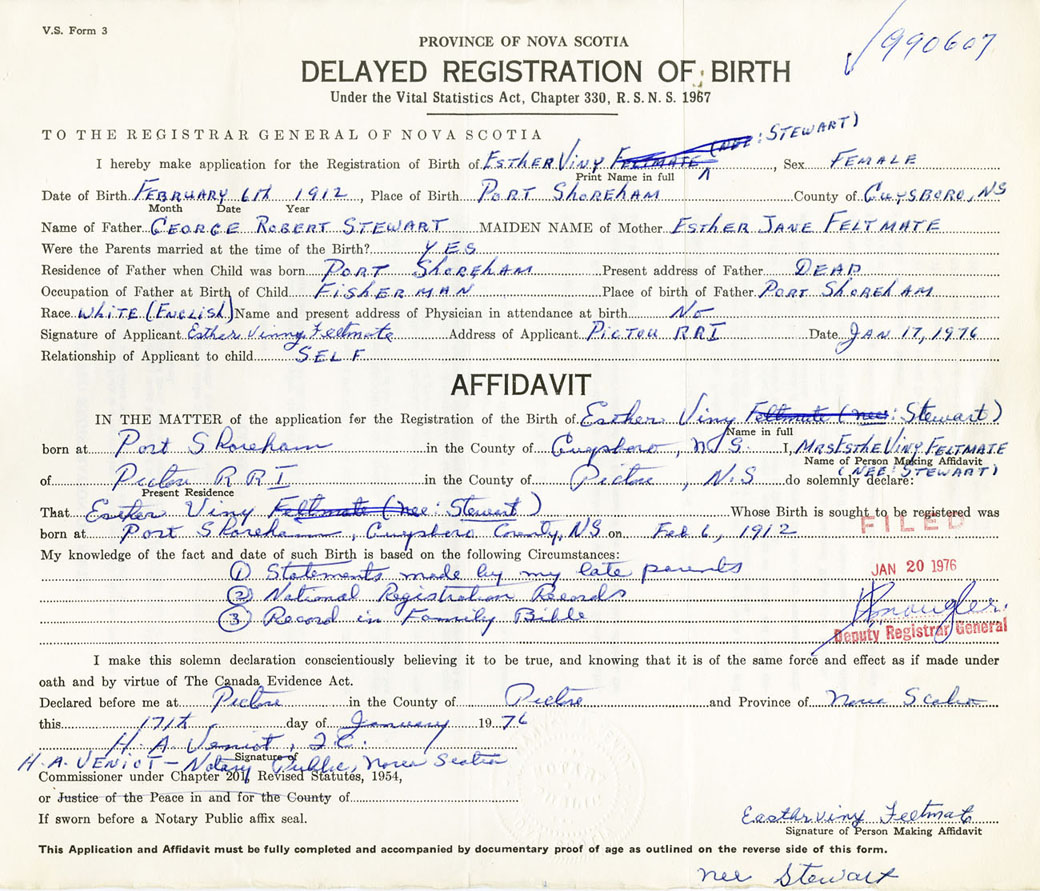 V.S. Form 3
990607
PROVINCE OF NOVA SCOTIA
DELAYED REGISTRATION OF BIRTH
Under the Vital Statistics Act, Chapter 330, R.S.N.S. 1967
TO THE REGISTRAR GENERAL OF NOVA SCOTIA
I hereby make application for the Registration of Birth of ESTHER VINY FELTMATE (NEE: STEWART), Sex FEMALE
Print Name in full
Date of Birth FEBRUARY 6TH 1912, Place of Birth PORT SHOREHAM County of GUYSBORO, NS
Month Date Year
Name of Father GEORGE ROBERT STEWART MAIDEN NAME of Mother ESTHER JANE FELTMATE
Were the Parents married at the time of the Birth? YES
Residence of Father when Child was born PORT SHOREHAM Present address of Father DEAD
Occupation of Father at Birth of Child FISHERMAN Place of birth of Father PORT SHOREHAM
Race WHITE (ENGLISH) Name and present address of Physician in attendance at birth NO
Signature of Applicant Esther Vinny Feltmate Address of Applicant PICTOU RR1 Date JAN 17, 1976
Relationship of Applicant to child SELF
AFFIDAVIT
IN THE MATTER of the application for the Registration of the Birth of Esther Viny Feltmate (nee: Stewart)
Name in full
born at Port Shoreham in the County of Guysboro, N.S. I, MRS ESTHE VINY FELTMATE
Name of Person Making Affidavit
(NEE: STEWART)
of Pictou RR1 in the County of Pictou, N.S do solemnly declare:
Present Residence
That Esther Viny Feltmate (nee: Stewart) Whose Birth is sought to be registered was
born at Port Shoreham, Guysboro County, NS on Feb 6, 1912
FILED
My knowledge of the fact and date of such Birth is based on the following Circumstances:
① Statements made by my late parents
JAN 20 1976
② National Registration Records
③ Record in Family Bible
Deputy Registrar General
I make this solemn declaration conscientiously believing it to be true, and knowing that it is of the same force and effect as if made under
oath and by virtue of The Canada Evidence Act.
Declared before me at Pictou in the County of Pictou and Province of Nova Scotia
this 17th day of January 1976
H. A. Veniot, Q.C.
Signature of
H. A. VENIOT – Notary Public, Nova Scotia
Commissioner under Chapter 201, Revised Statutes, 1954,
or Justice of the Peace in and for the County of
If sworn before a Notary Public affix seal.
Easther viny Feltmate
Signature of Person Making Affidavit
This Application and Affidavit must be fully completed and accompanied by documentary proof of age as outlined on the reverse side of this form.
nee Stewart